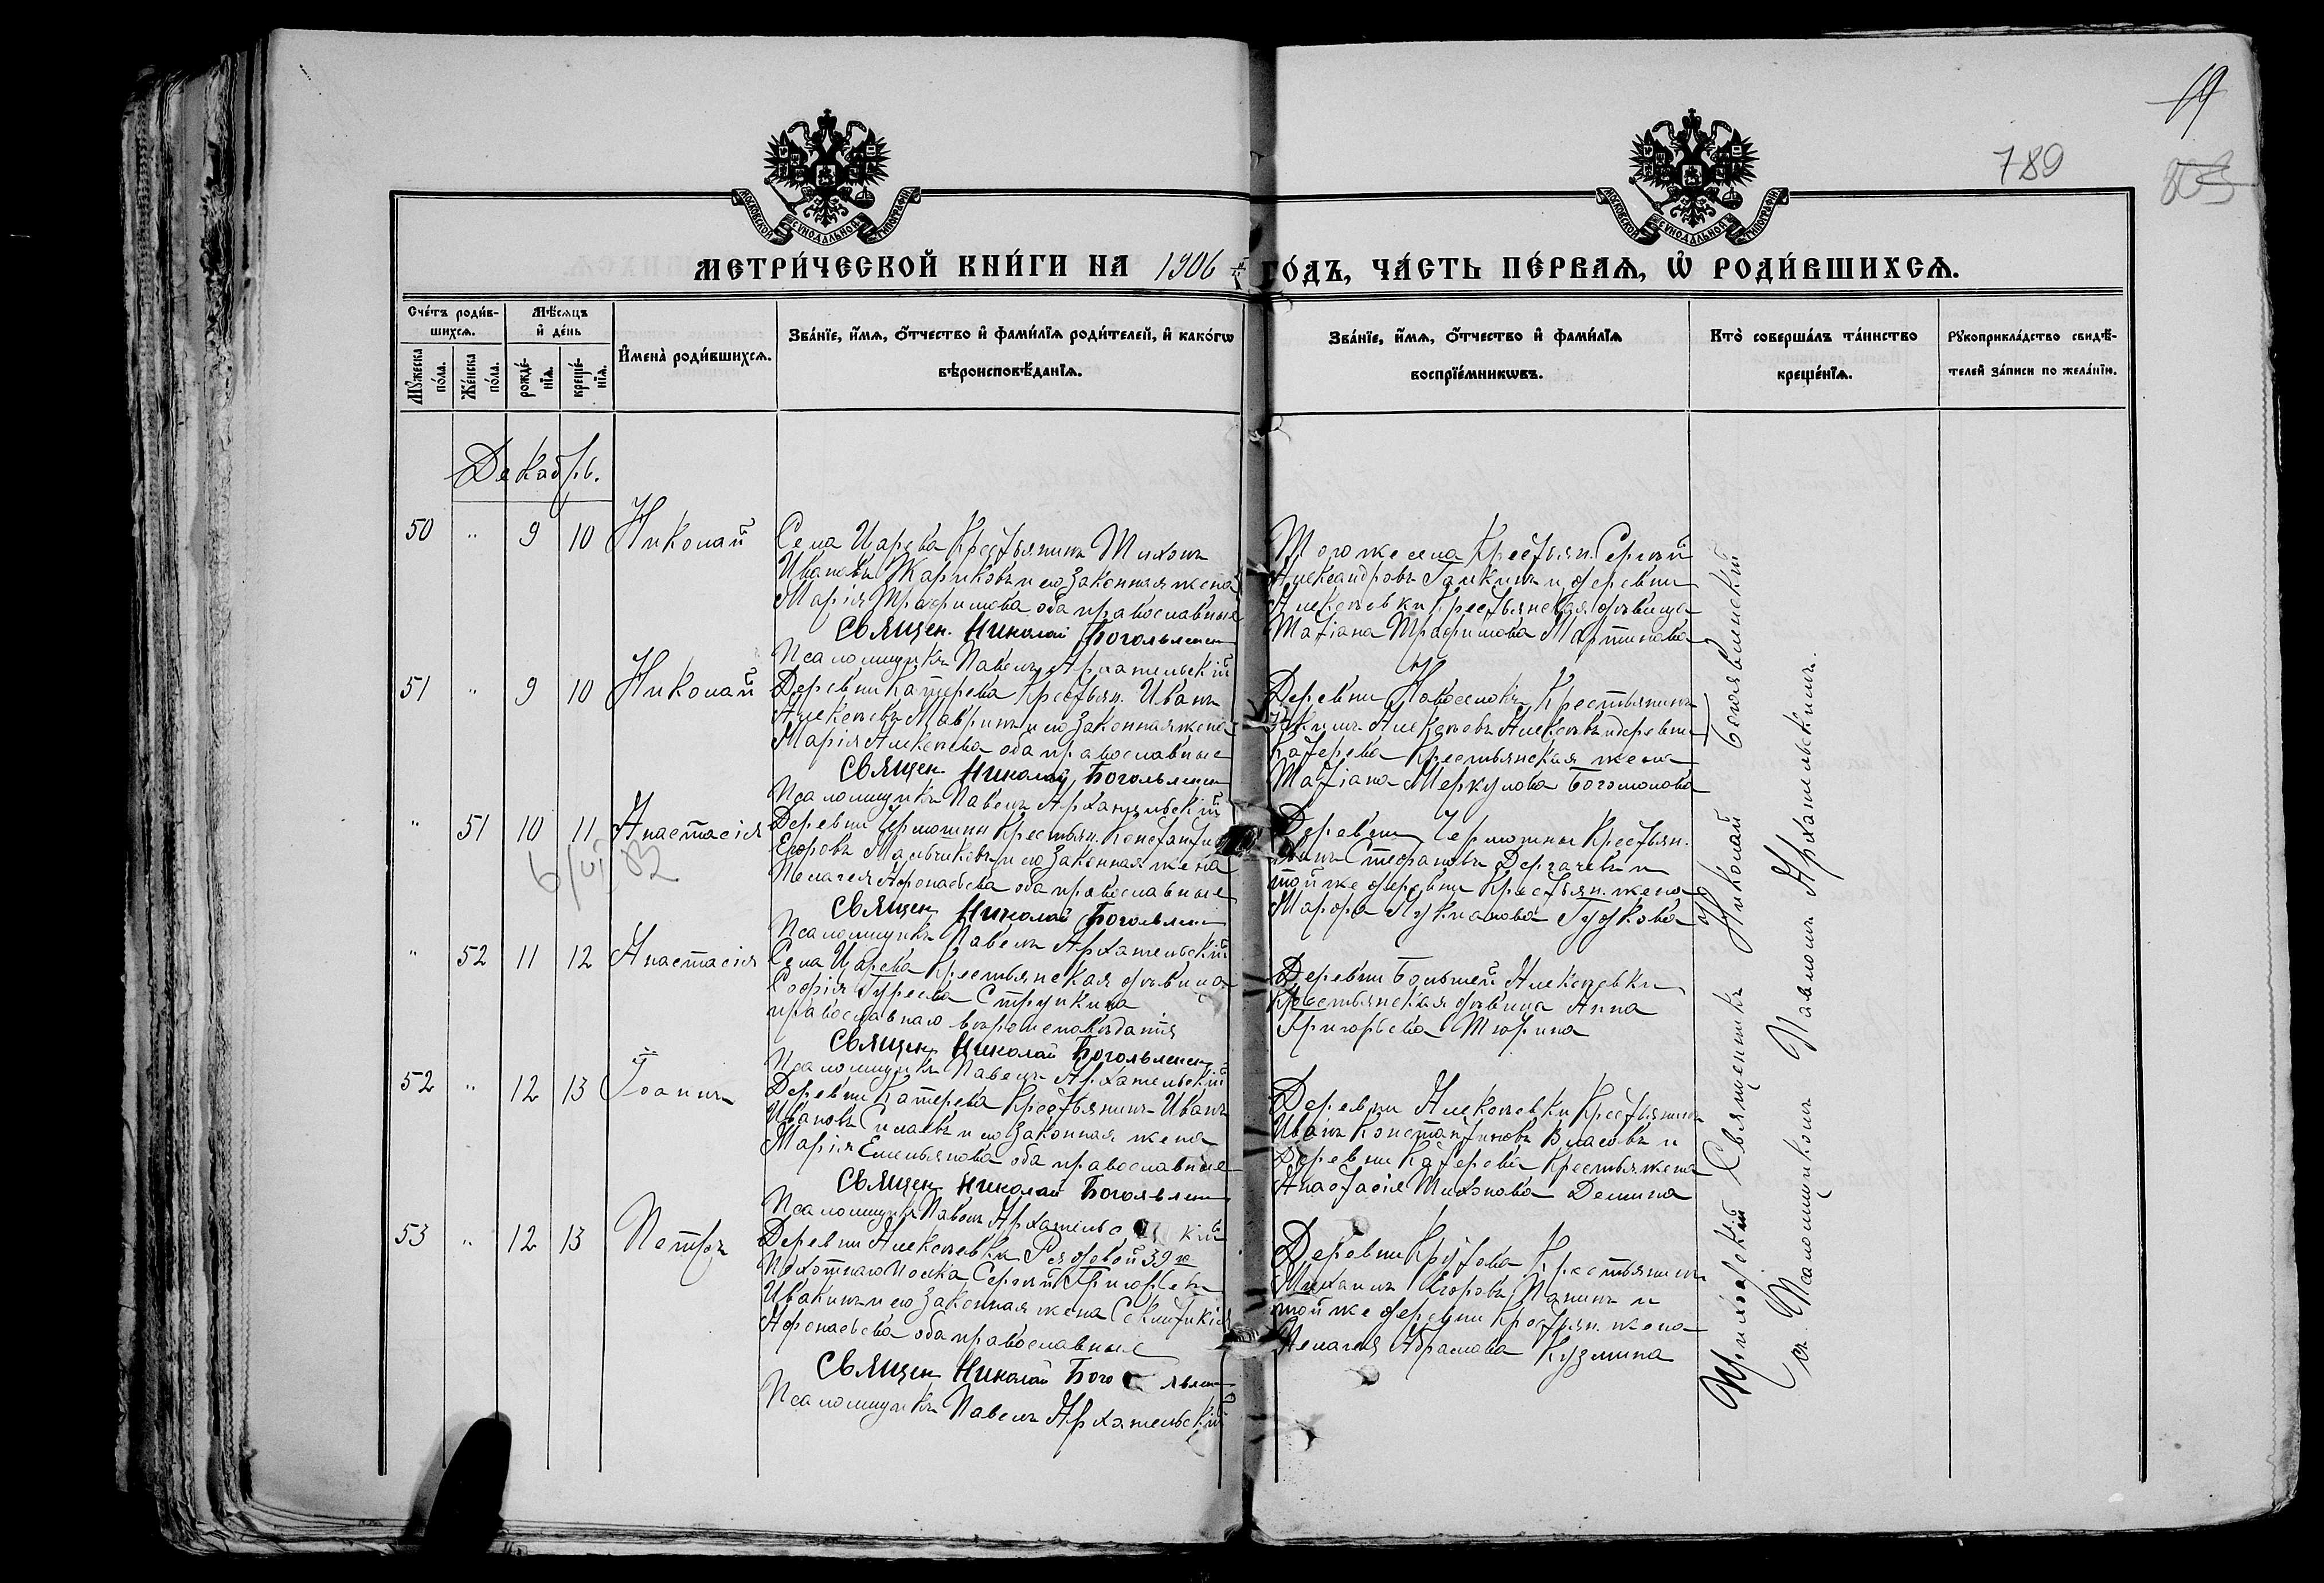 19
789
МОСКОВСКОЙ СѴНОДАЛЬНОЙ ТИПОГРАФІИ
МОСКОВСКОЙ СѴНОДАЛЬНОЙ ТИПОГРАФІИ
МЕТРИ́ЧЕСКОЙ КНИ́ГИ НА 1906 й ГО́ДЪ, ЧА́СТЬ ПЕ́РВАѦ, Ѡ҆ РОДИ́ВШИХСѦ.
Сче́тъ роди́в-
шихсѧ.
Мѣ́сѧцъ
и҆ де́нь
Мꙋ́жеска по́ла.
Же́нска по́ла.
рожде́-нїѧ.
креще́-нїѧ.
И҆мена̀ роди́вшихсѧ.
Зва́нїе, и҆́мѧ, ѻ҆́тчество и҆ фами́лїѧ роди́телей, и҆ како́гѡ
вѣроисповѣ́данїѧ.
Зва́нїе, и҆́мѧ, ѻ҆́тчество и҆ фами́лїѧ
воспрїе́мникѡвъ.
Кто̀ соверша́лъ та́инство
креще́нїѧ.
Рꙋкоприкла́дство свидѣ́-
телей за́писи по жела́нїю.
Декабрь.
50 " 9 10 Николай
Села Царева Крестьянинъ Тихонъ
Ивановъ Жариковъ и его законная жена
Марія Трофимова оба православные
Священ. Николай Богоявленск
Псаломщикъ Павелъ Архангельскій
Того же села Крестьян. Сергѣй
Александровъ Галкинъ и деревни
Алексѣевки Крестьянская дѣвица
Татіана Трофимова Мартинова
51 " 9 10 Николай
Деревни Катерева Крестьян. Иванъ
Алексѣевъ Мавринъ и его законная жена
Марія Алексѣева оба православные
Священ. Николай Богоявленск
Псаломщикъ Павелъ Архангельскій
Деревни Новоселокъ Крестьянинъ
Алексѣевъ и деревни
Катерева Крестьянская жена
Татіана Меркулова Богомолова
" 51 10 11 Анастасія
Деревни Чермошни Крестьян. Константинъ
Егоровъ Мальчиковъ и его законная жена
Пелагея Афонасьева оба православные
Священ. Николай Богоявлен
Псаломщикъ Павелъ Архангельскій
Деревни Чермошны Крестьян.
Иванъ Стефановъ Дергачевъ и
той же деревни Крестьян. жена
Марфа Лукианова Гудкова
" 52 11 12 Анастасія
Села Царева Крестьянская дѣвица
Софія Гуреева Стрункина
православнаго вѣроисповѣданія
Священ. Николай Богоявленск
Псаломщикъ Павелъ Архангельскій
Деревни Большей Алексѣевки
Крестьянская дѣвица Анна
Григорьева Тюрина
52 " 12 13 Іоаннъ
Деревни Катерева Крестьянинъ Иванъ
Ивановъ Силаевъ и его законная жена
Марія Емельянова оба православные
Священ. Николай Богоявлен
Псаломщикъ Павелъ Архангельскій
Деревни Алексѣевки Крестьянинъ
Иванъ Константиновъ Власовъ и
Деревни Катерева Крестья. жена
Анастасія Тихонова Демина
53 " 12 13 Петръ
Деревни Алексѣевки Рядовой 39 го
Пѣхотнаго полка Сергѣй Григорьевъ
Ивакинъ и его законная жена Секлитикія
Афонасьева оба православные
Священ. Николай Богоявлен
Псаломщикъ Павелъ Архангельскій
Деревни Крутова Крестьянинъ
Михаилъ Егоровъ Панинъ и
той же деревни Крестьян. жена
Пелагея Абрамова Кузмина
Приходскій Священникъ Николай Богоявленскій
съ Псаломщикомъ Павломъ Архангельскимъ.